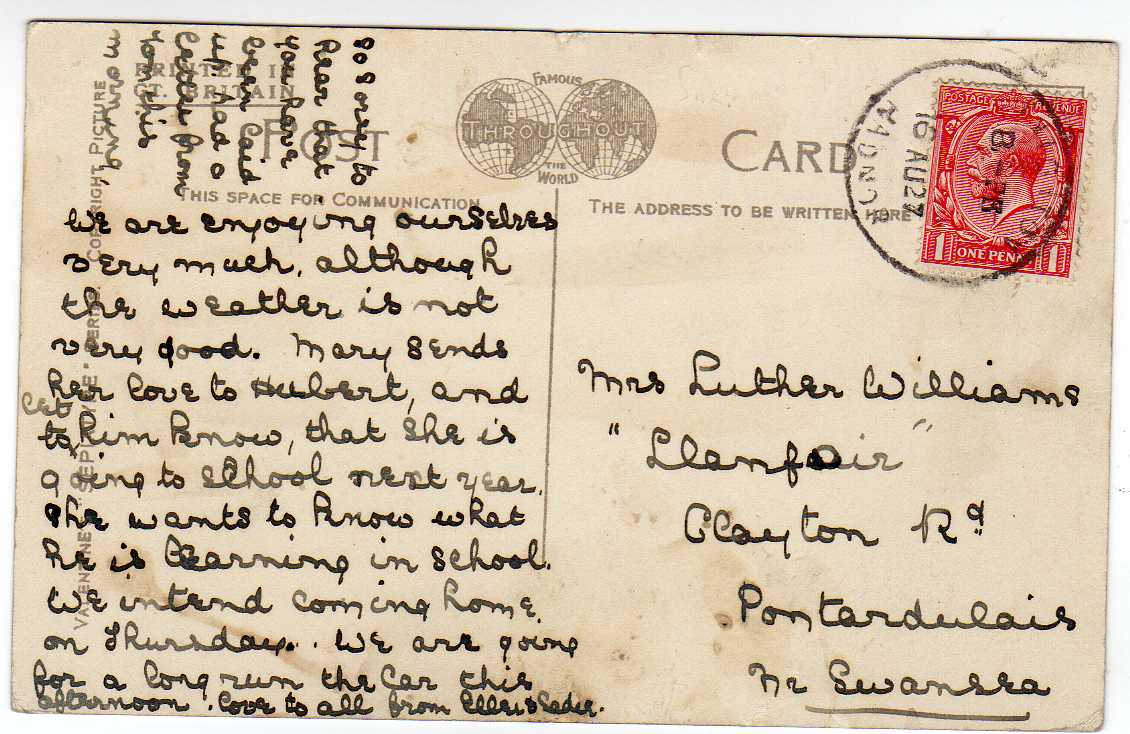 PRINTED IN
GT. BRITAIN
POST
CARD
FAMOUS
THROUGHOUT
THE
WORLD
THIS SPACE FOR COMMUNICATION
THE ADDRESS TO BE WRITTEN HERE
COPYRIGHT PICTURE
POSTAGE REVENUE
1 ONE PENNY 1
RADNOR
16 AU 27
We are enjoying ourselves
very much, although
the weather is not
very good. Mary sends
her love to Hubert, and
let
to, him know, that she is
going to school next year.
She wants to know what
he is learning in school.
We intend coming home
on Thursday. We are going
for a long run the Car this
afternoon. Love to all from
So Sorry to
hear that
you have
been laid
up. had a
letter from
Tom this
morning
Mrs Luther Williams
"Llanfair"
Clayton Rd
Pontardulais
Nr Swansea